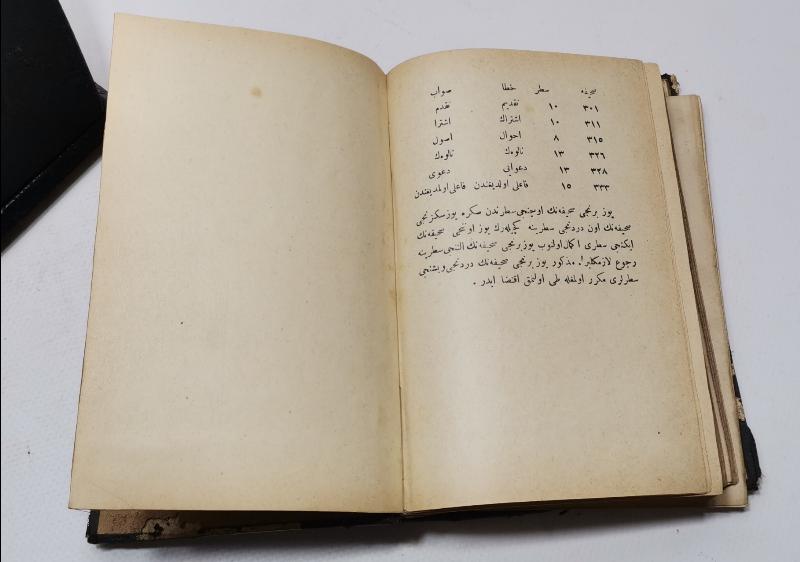 صحیفه سطر خطا صواب
٣٠١ ١٠ تقدیم تقدم
٣١١ ١٠ اشتراك اشترا
٣١٥ ٨ احوال اصول
٣٢٦ ١٣ نالوەك نالوەك
٣٢٨ ١٣ دعوایی دعوی
٣٣٣ ١٥ فاعلی اولدیغندن فاعلی اولمدیغندن
یوز برنجی صحیفەنك اوچنجی سطرندن صكره یوز سكزنجی
صحیفەنك اون دردنجی سطرینه كچیلەرك یوز اوننجی صحیفەنك
ایكنجی سطری اكمال اولنوب یوز برنجی صحیفەنك التنجی سطرینه
رجوع لازمكلیر. مذكور یوز برنجی صحیفەنك دردنجی وبشنجی
سطرلری مكرر اولمغله طی اولنمق اقتضا ایدر .